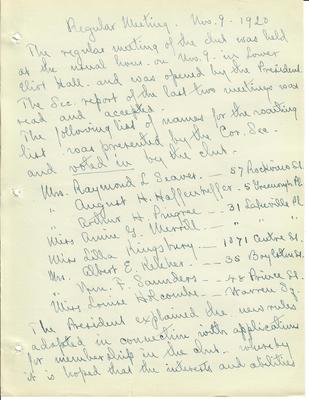 Regular Meeting. Nov. 9 - 1920
The regular meeting of the club was held
at the usual hour on Nov. 9 - in Lower
Eliot Hall - and was opened by the President.
The Sec. report of the last two meetings was
read and accepted.
The following list of names for the waiting
list was presented by the Cor. Sec.
and voted in by the club.
Mrs. Raymond L. Seaver - 57 Rockview St.
" August H. Haffenreffer - 5 Greenough Pl.
" Arthur H. Pingree - 31 Lakeville Pl.
Miss Annie G. Merrill - " " "
Miss Lilla Kingsbury - 1071 Centre St.
Mrs. Albert E. Keleher - 35 Boylston St.
" Wm. F. Saunders - 48 Prince St.
Miss Louise Holcombe - Warren Sq.
The President explained the new rules
adopted in connection with applications
for membership in the club - whereby
it is hoped that the interests and abilities